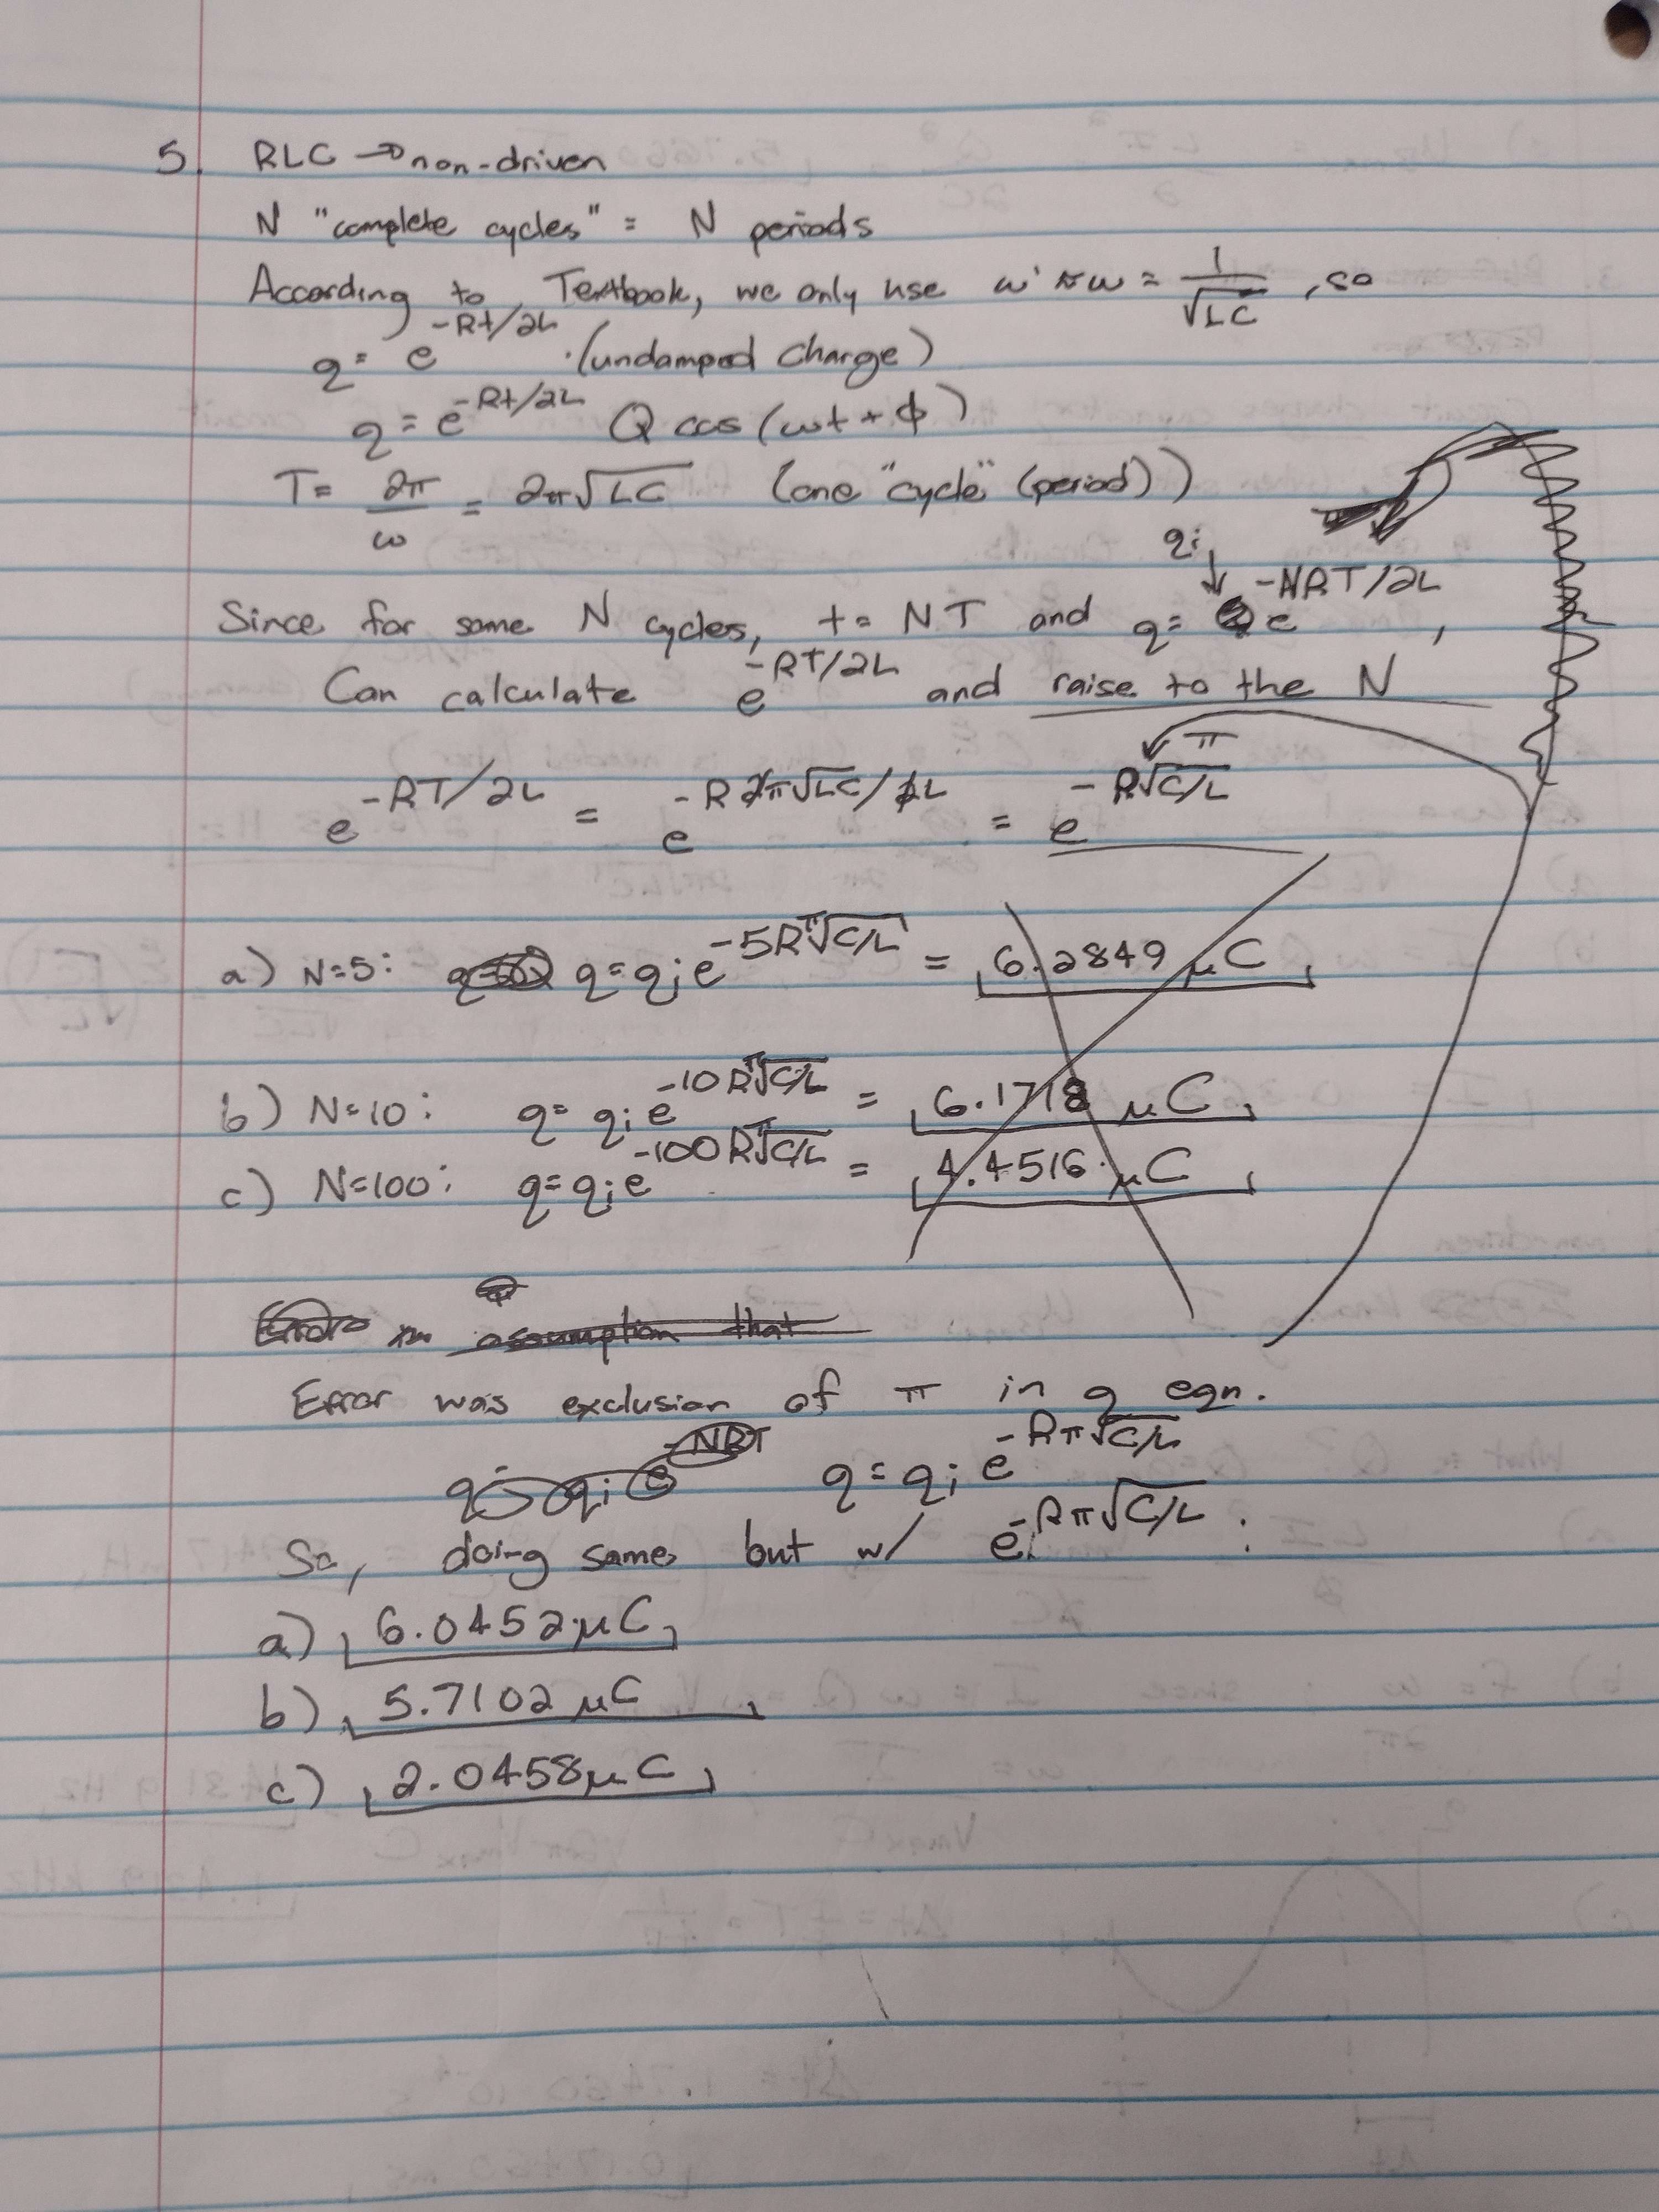 5. RLC → non-driven
N "complete cycles" = N periods
According to Textbook, we only use ω' ≈ ω = 1/√LC, so
q = e^(-Rt/2L) · (undamped charge)
q = e^(-Rt/2L) Q cos(ωt + ϕ)
T = 2π/ω = 2π√LC (one "cycle" (period))
qi ↓
Since for some N cycles, t = NT and q = e^(-NRT/2L),
Can calculate e^(-RT/2L) and raise to the N
e^(-RT/2L) = e^(-R2π√LC/2L) = e^(-Rπ√C/L)
a) N=5: q = qi e^(-5Rπ√C/L) = 6.2849 μC
b) N=10: q = qi e^(-10Rπ√C/L) = 6.1718 μC
c) N=100: q = qi e^(-100Rπ√C/L) = 4.4516 μC
Error in assumption that
Error was exclusion of π in q eqn.
q = qi e^(-NRT) q = qi e^(-Rπ√C/L)
So, doing same but w/ e^(-Rπ√C/L):
a) 6.0452 μC
b) 5.7102 μC
c) 2.0458 μC